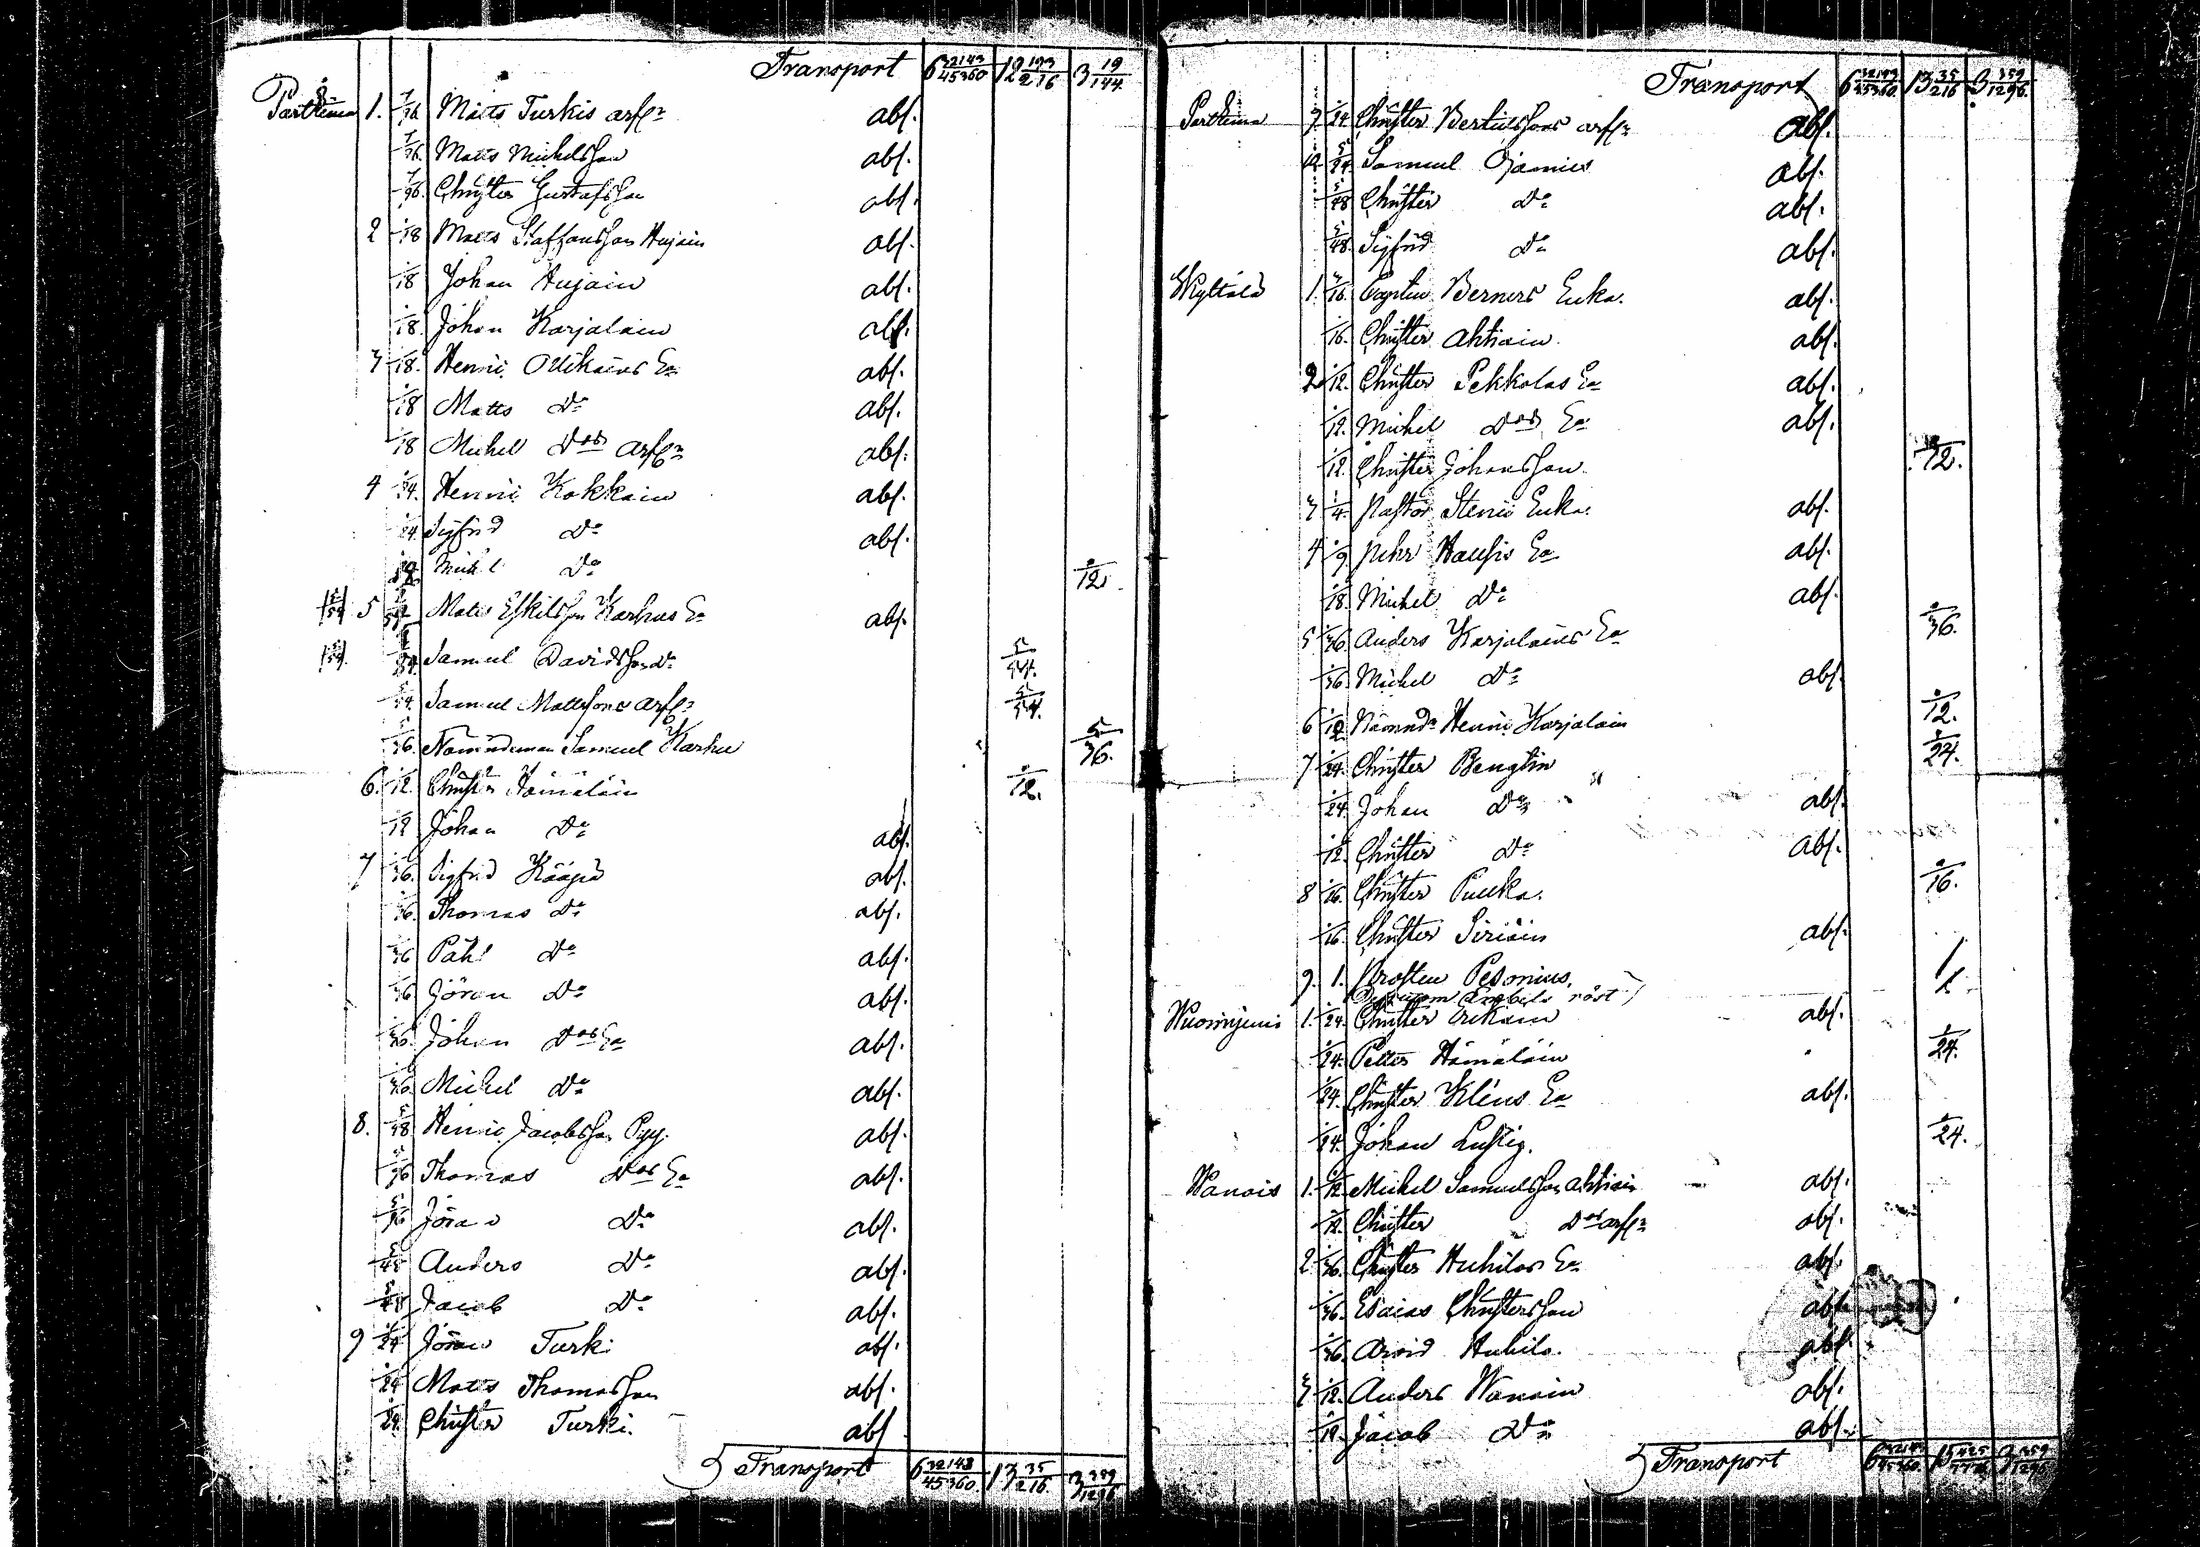 Transport 6 32143/45360 12 193/216 3 19/144
Parttima 1. 7/96 Matts Turkis arfr abs.
7/96. Matts Michelsson abs.
7/96. Christer Gustafsson abs.
2 1/18 Matts Staffansson Hujain abs.
1/18 Johan Hujain abs.
1/18. Johan Karjalain abs.
3 1/18. Henric Ollikains Ea abs.
1/18 Matts Do abs.
1/18 Michel Dos arfr abs.
4 1/24. Henric Kokkain abs.
1/24. Sigfrid Do abs.
Michel Do 1/12
5 Matts Eskilsson Karhus Ea abs.
Samuel Davidsson Do 5/54.
5/54. Samuel Mattssons arfr 5/54.
5/36. Nämndeman Samuel Karhu 5/36.
6. 1/12. Christer Hämäläin 1/12.
1/12 Johan Do abs.
7 1/36. Sigfrid Kääpä abs.
1/36. Thomas Do abs.
1/36 Påhl Do abs.
1/36 Jöran Do abs.
1/36 Johan Dos Ea abs.
1/36 Michel Do abs.
8. 5/48 Henric Jacobsson Pyy. abs.
5/96 Thomas Dos Ea abs.
5/96 Jöran Do abs.
5/48 Anders Do abs.
5/48 Jacob Do abs.
9 1/24 Jöran Turki abs.
1/24 Matts Thomasson abs.
1/24. Christer Turki. abs
Transport 6 32143/45360 13 35/216. 3 359/1296
Transport 6 32143/45360. 13 35/216 3 359/1296.
Parttima 9. 1/24. Christer Bertilssons arfr abs.
10 5/24. Samuel Ojamies abs.
5/48 Christer Do abs.
5/48. Sigfrid Do abs.
Skyttälä 1. Captein Berners Enka. abs.
1/16. Christer Ahtiain. abs.
2 1/12. Christer Pekkolas Ea abs.
1/12. Michel Dos Ea abs.
1/12. Christer Johansson. 1/12.
3 1/4. Pastor Stenii Enka. abs.
4 1/9. Pehr Haussis Ea abs.
1/18. Michel Do abs.
5 1/36 Anders Karjalains Ea 1/36.
1/36 Michel Do abs.
6 1/12 Nämnd: Henric Karjalain 1/12.
7 1/24. Christer Bengtin 1/24.
1/24. Johan Do abs.
1/12. Christer Do abs.
8 1/16. Christer Puukka. 1/16.
1/16. Christer Siriäin abs.
9. 1. Prosten Pesonius, 1
röst)
Wuorinjemi 1. 1/24. Christer Erikain abs.
1/24. Petter Hämäläin 1/24.
1/24. Christer Kléns Ea abs.
1/24. Johan Lustig. 1/24.
Wanais 1. 1/12 Michel Samuelsson Ahtiain abs.
1/12. Christer Dos arfr abs.
2 1/36. Christer Huhilas Ea abs.
1/36. Esaias Christersson abs.
1/36. Arvid Huhila. abs.
3 1/12. Anders Wanain abs.
1/12. Jacob Do abs.
Transport